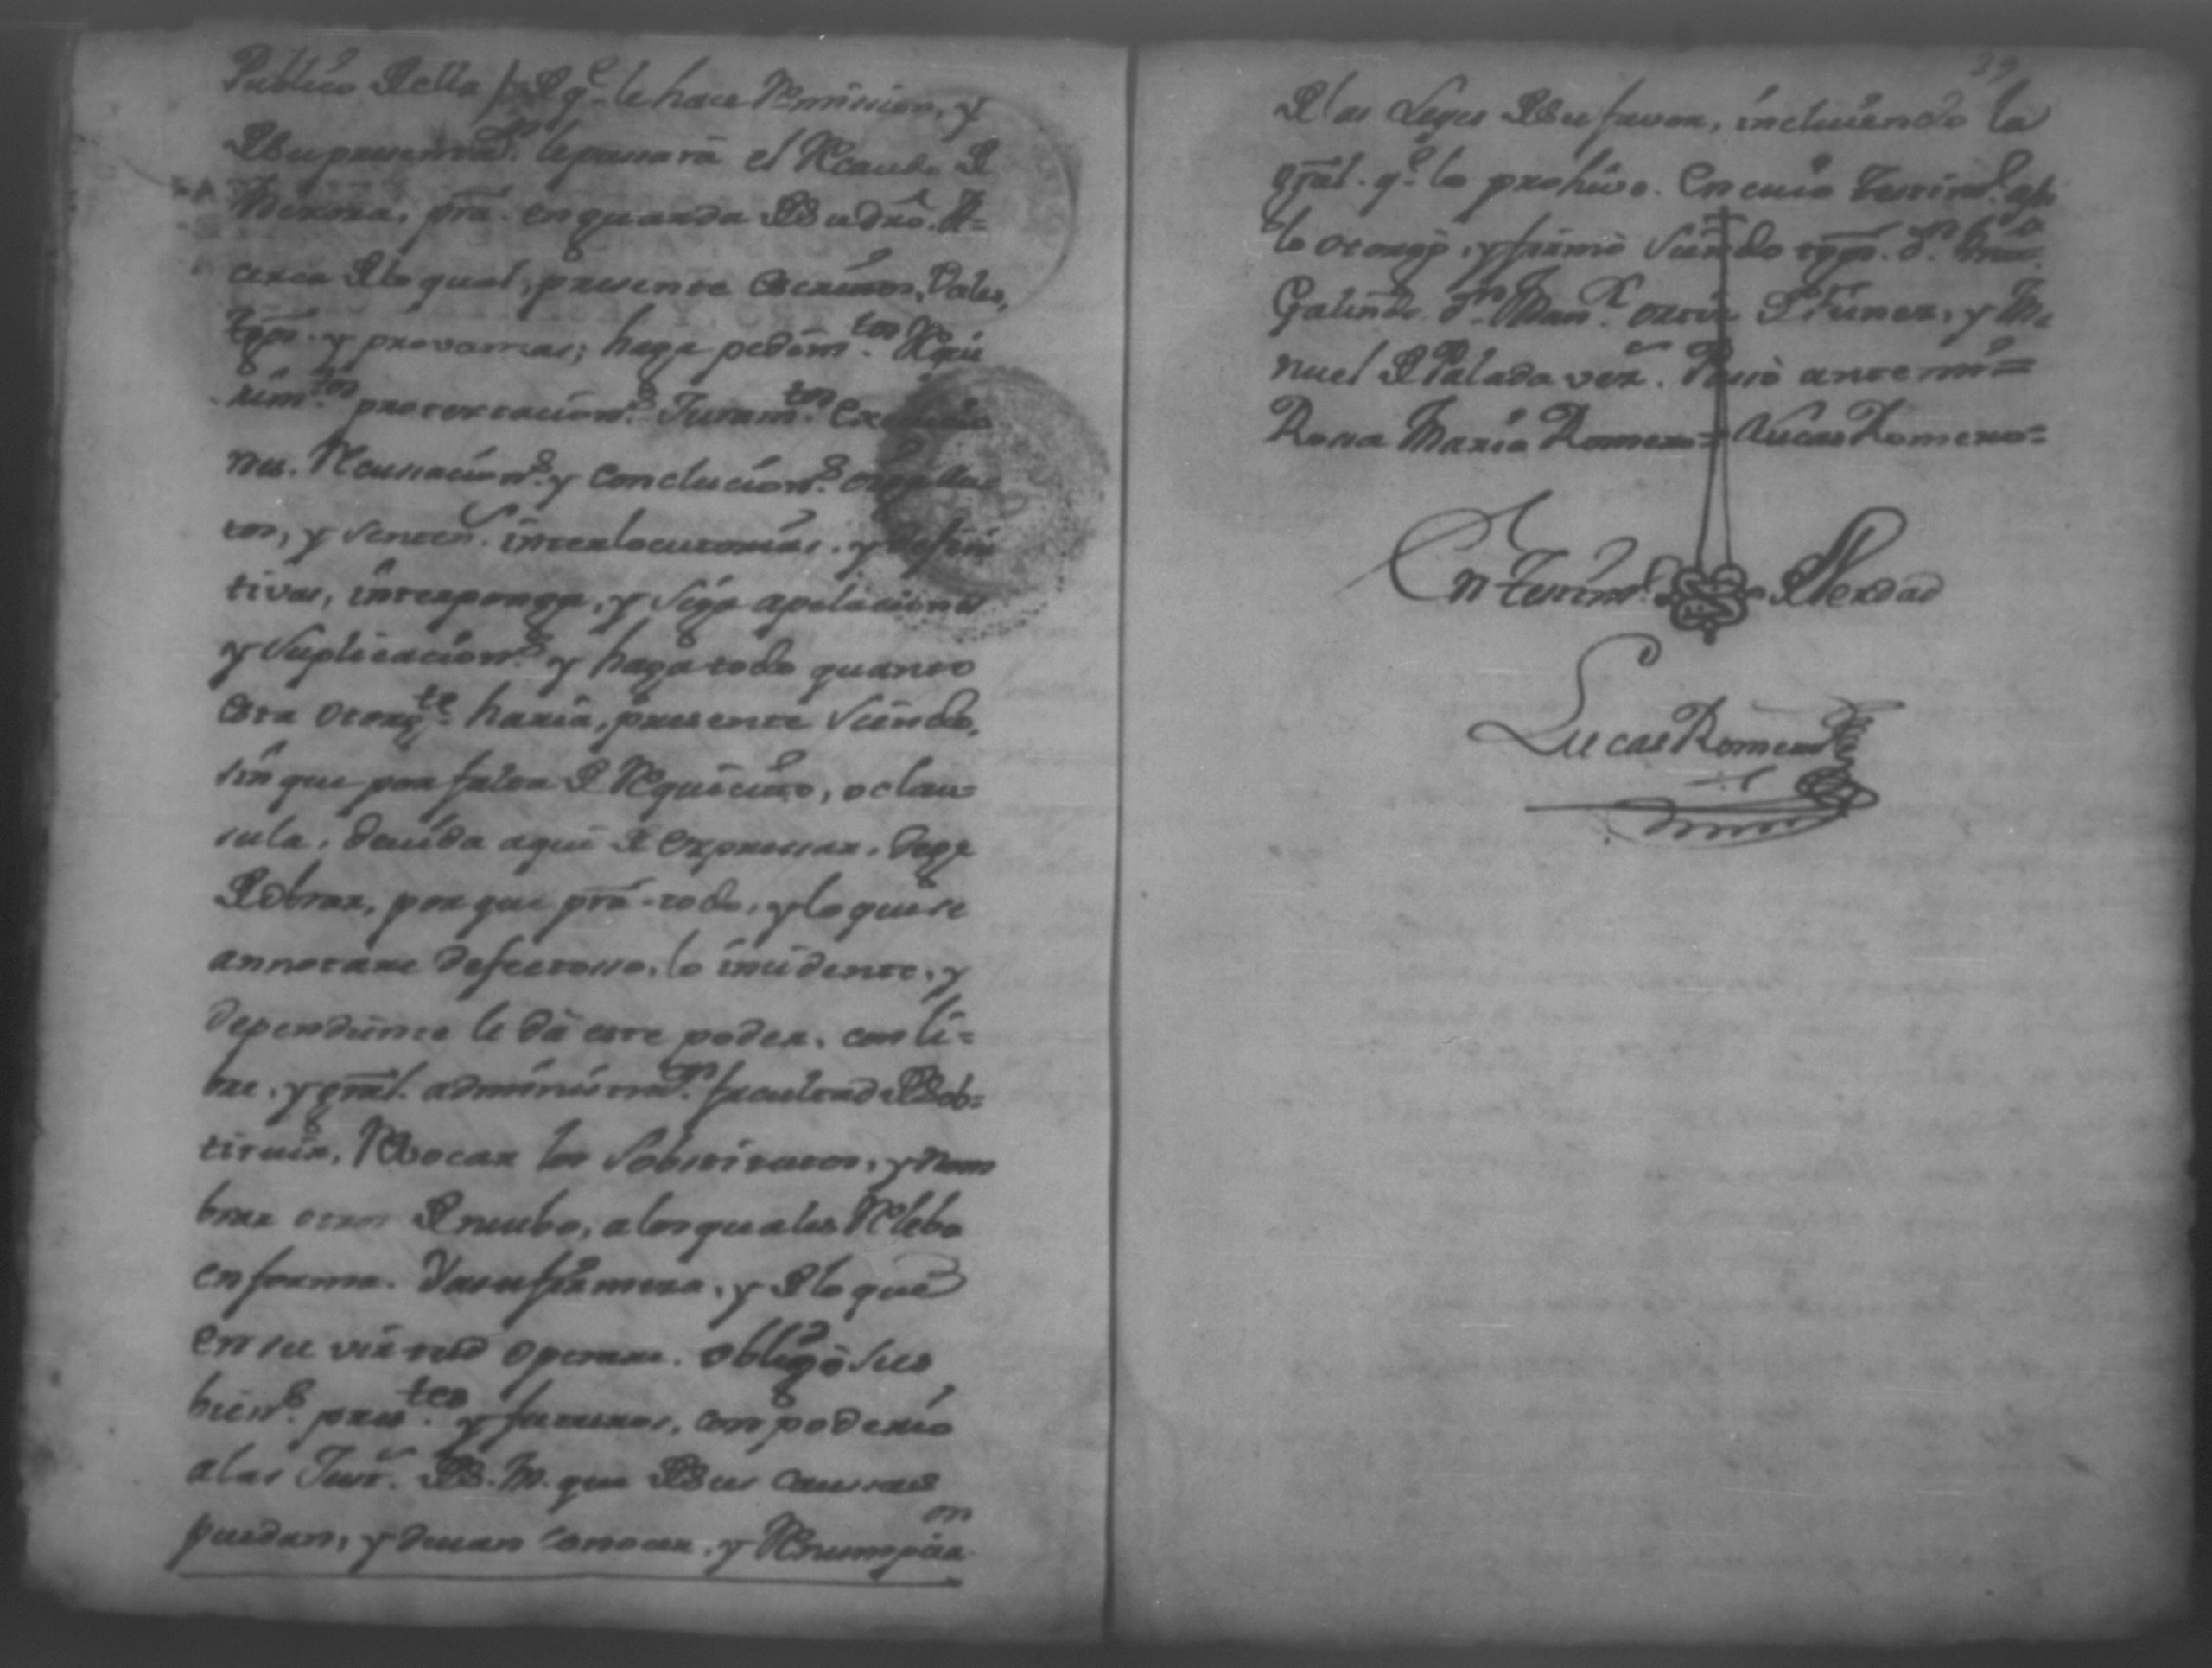 Publico della / de q.e le hace Remission, y
de su presentaz.on le pasará el Recaudo de
herena, pra. en guarda de su dro. A=
cerca de lo qual, presente escriptos, vales,
tgos. y provanzas; haga pedim.tos Reque
rim.tos protextacion.s Juram.tos Exe
nes. Recusacion.s y conclucion.s
tos, y senten. interlocutorias. y defini
tivas, interponga, y siga apelaciones
y suplicacion.s y haga todo quanto
esta otorg.te haria, presente siendo,
sin que por falta de Requicito, o clau=
sula, devida aqui de expressar, dege
de obrar, porque pra. todo, y lo que se
annotare defectosso, lo incidente, y
dependiente le dá este poder, con li=
bre, y gral. administraz.on facultad de sob=
tituir, Rebocar los sobstitutos, y nom
brar otros de nuebo, a los quales Releba
en forma. Y a su firmeza, y de lo que
en su virtud operare. obligó sus
bien.s pres.tes y futuros, con poderio
a las Just. de S. M. que de sus caussas
puedan, y devan conocer, y Renumpia.on
39
de las Leyes de su favor, incluiendo la
gral. q.e lo prohive. En cuio testim.o assi
lo otorgó, y firmó siendo tgos. d.n
Galindo d.n Man.l ortiz de Funez, y Ma
nuel de Paladaver. Passó ante mi =
Rosa Maria Romero = Lucas Romero =
En testim.o de Verdad
Lucas Romero